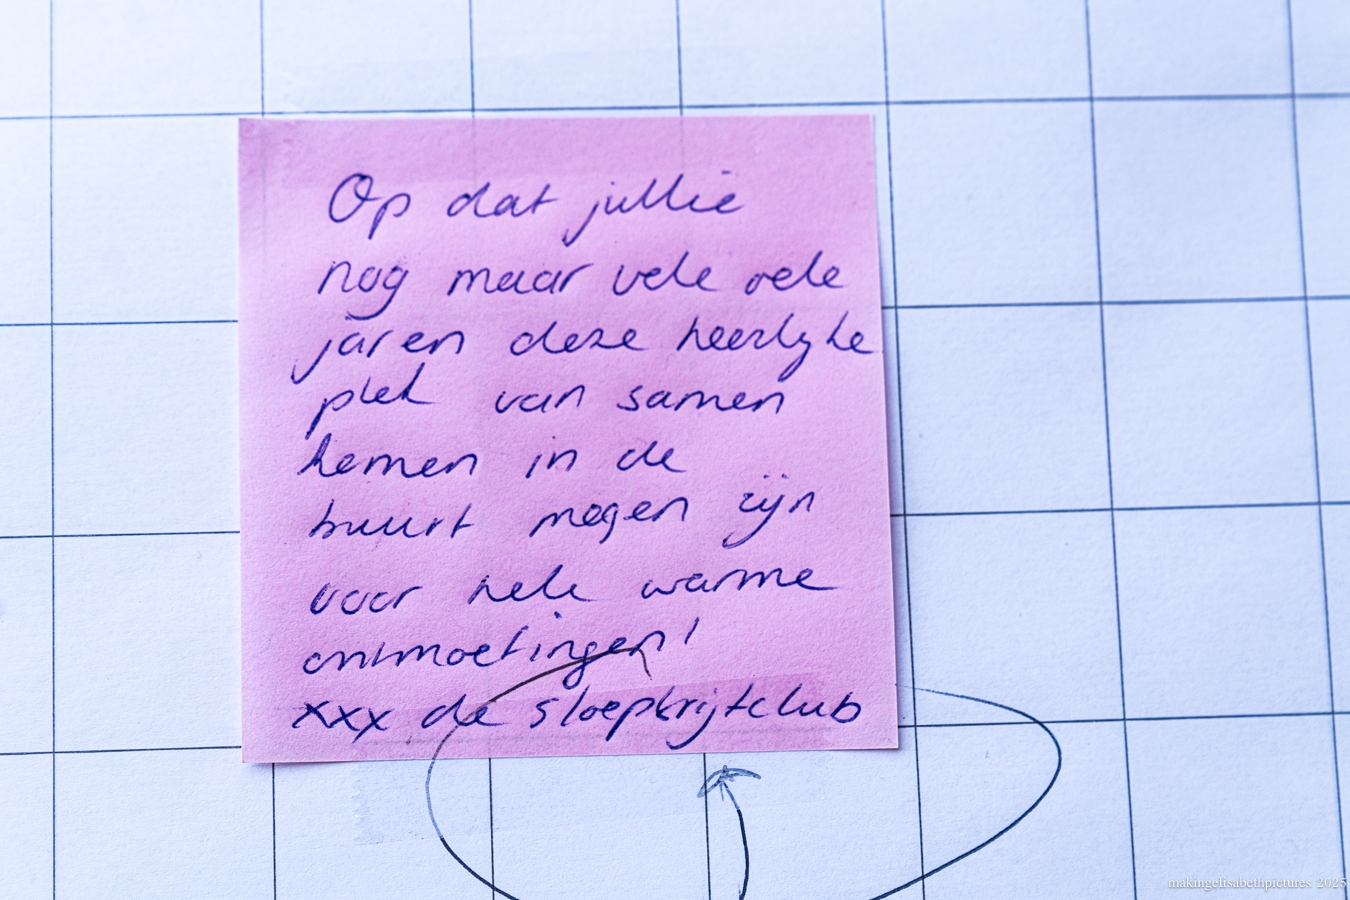 Op dat jullie
nog maar vele vele
jaren deze heerlijke
plek van samen
komen in de
buurt mogen zijn
voor hele warme
ontmoetingen!
xxx de sloepkrijtclub
makingelisabethpictures 2025